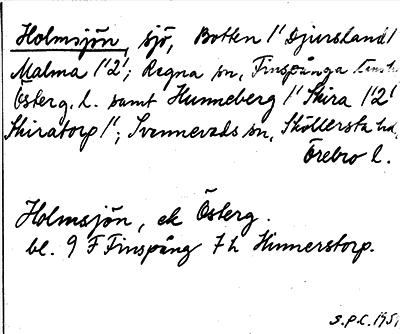 Holmsjön, sjö, Botten 1' Djursland 1
Malma 1'2'; Regna sn, Finspånga länsh
Österg. l. samt Hunneberg 1' Skira 1'2'
Skiratorp 1'; Svennevads sn, Sköllersta hd,
Örebro l.
Holmsjön, ek Österg.
bl. 9 F Finspång 7 h Hinnerstorp.
S.P.C. 195